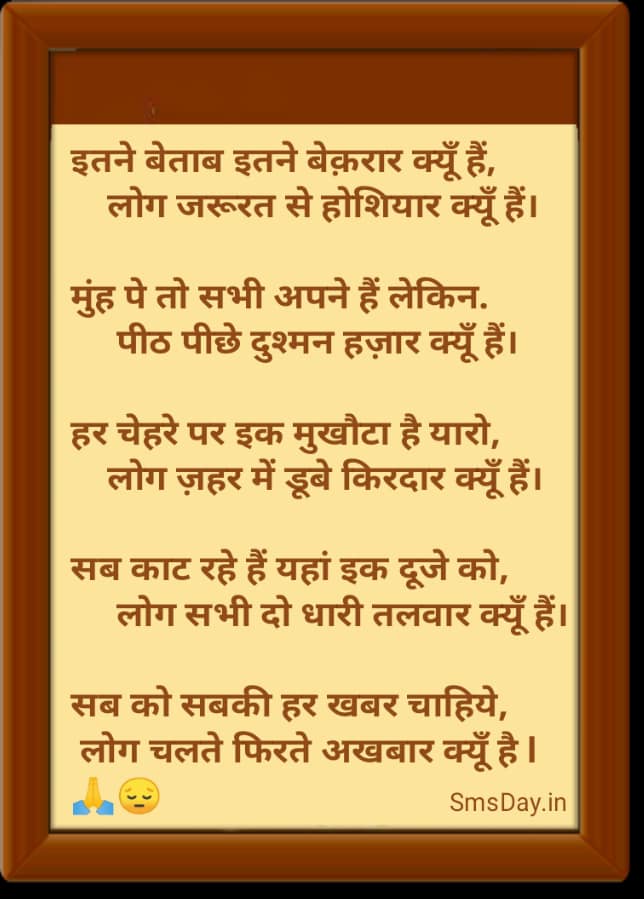 इतने बेताब इतने बेक़रार क्यूँ हैं,
लोग जरूरत से होशियार क्यूँ हैं।
मुंह पे तो सभी अपने हैं लेकिन.
पीठ पीछे दुश्मन हज़ार क्यूँ हैं।
हर चेहरे पर इक मुखौटा है यारो,
लोग ज़हर में डूबे किरदार क्यूँ हैं।
सब काट रहे हैं यहां इक दूजे को,
लोग सभी दो धारी तलवार क्यूँ हैं।
सब को सबकी हर खबर चाहिये,
लोग चलते फिरते अखबार क्यूँ है।
🙏😔
SmsDay.in